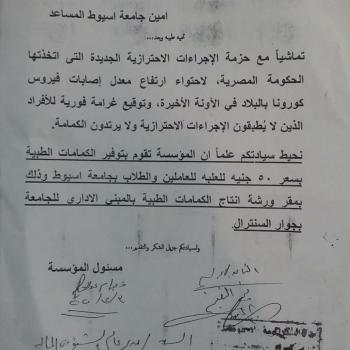 امين جامعة اسيوط المساعد
تحيه طيبه وبعد...
تماشياً مع حزمة الإجراءات الاحترازية الجديدة التى اتخذتها
الحكومة المصرية، لاحتواء ارتفاع معدل إصابات فيروس
كورونا بالبلاد في الآونة الأخيرة، وتوقيع غرامة فورية للأفراد
الذين لا يُطبقون الإجراءات الاحترازية ولا يرتدون الكمامة.
نحيط سيادتكم علماً ان المؤسسة تقوم بتوفير الكمامات الطبية
بسعر ٥٠ جنيه للعلبه للعاملين والطلاب بجامعة اسيوط وذلك
بمقر ورشة انتاج الكمامات الطبية بالمبنى الادارى للجامعة
بجوار السنترال
ولسيادتكم جزيل الشكر والتقدير...
مسئول المؤسسة